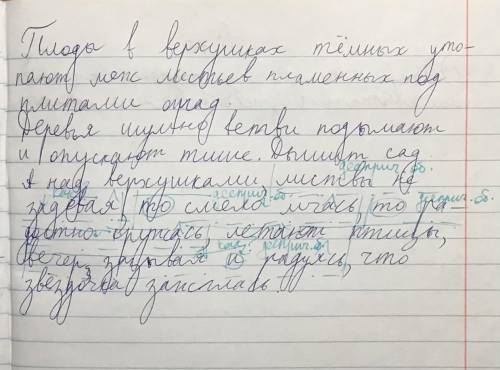 Плоды в верхушках тёмных уто-
пают меж листьев пламенных под
плитами оград.
Деревья шумно ветви подымают
и опускают тише. Дышит сад
дееприч. об.
А над верхушками листвы не
задевая, то смело мчась, то ра-
достно кружась летают птицы,
вечер задевая и радуясь, что
звёздочка зажглась.